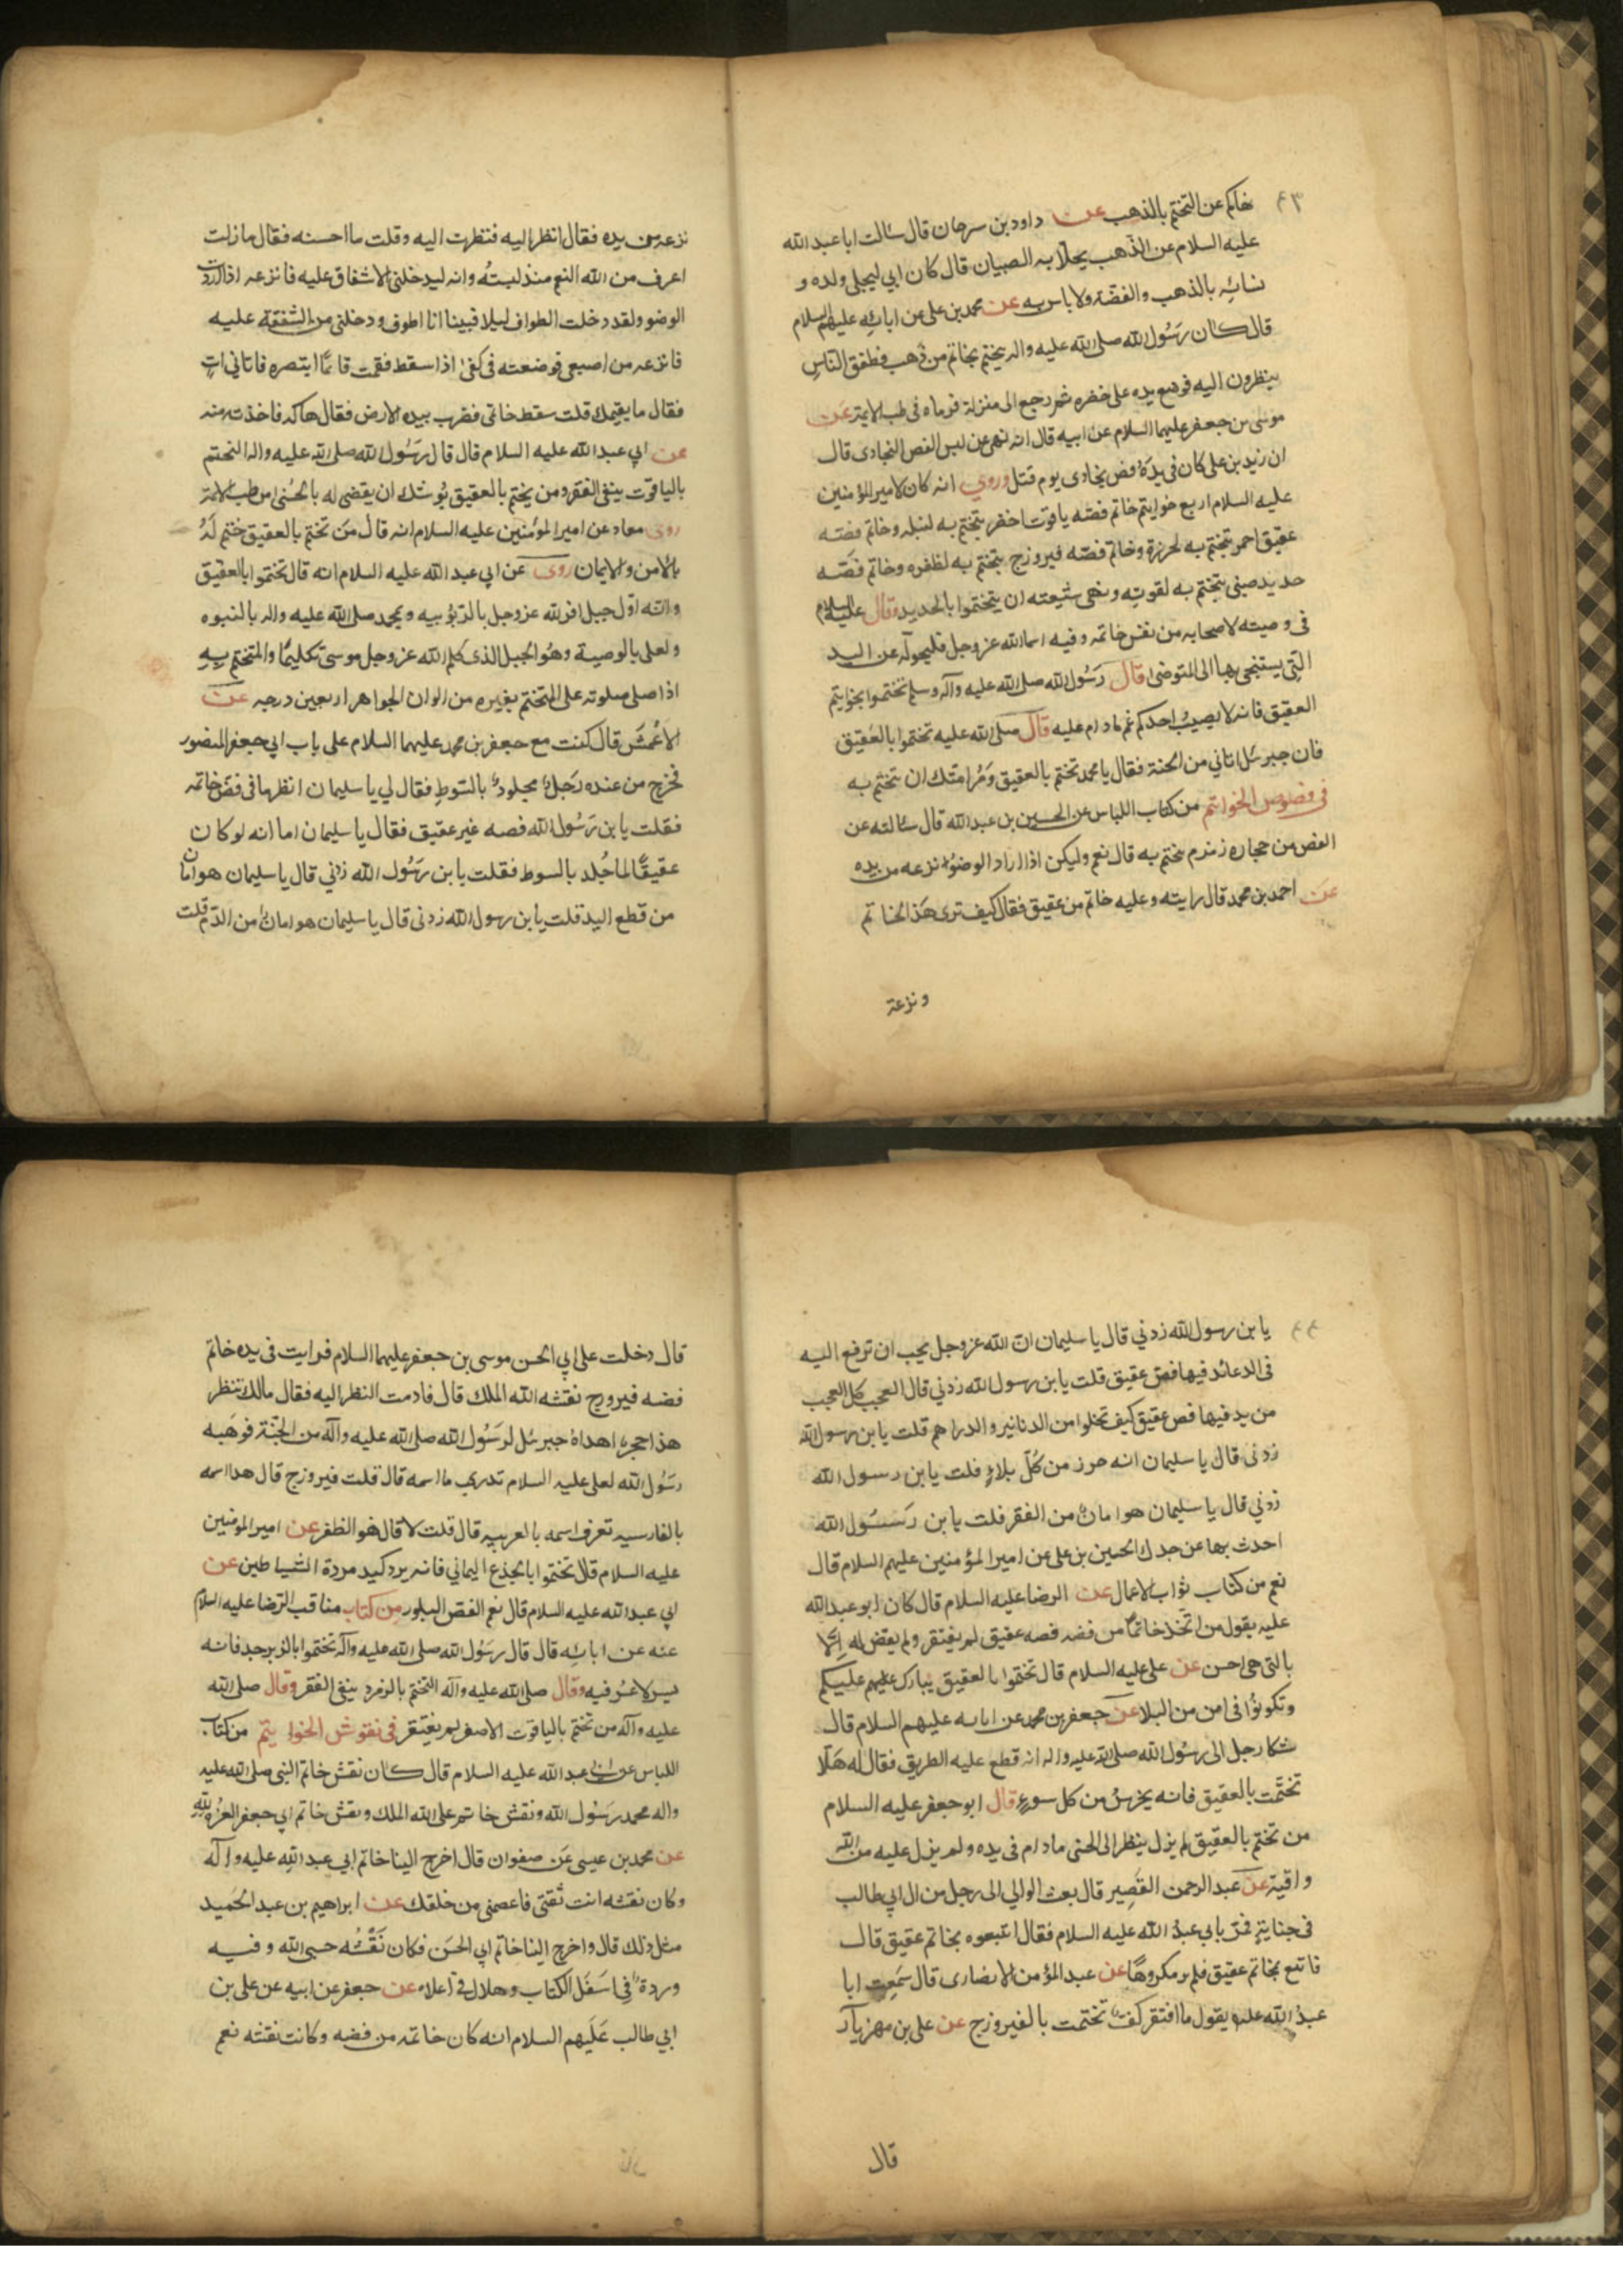 ٤٣
نهاكم عن التختم بالذهب عن داود بن سرحان قال سالت ابا عبد الله
عليه السلام عن الذهب يحلا به الصبيان قال كان ابي ليحلي ولده و
نسائه بالذهب والفضة ولا باس به عن محمد بن علي عن ابائه عليهم السلام
قال كان رسول الله صلى الله عليه واله يتختم بخاتم من ذهب فطفق الناس
ينظرون اليه فوضع يده على خنصره ثم رجع الى منزله فرماه في طب الايمة عن
موسى بن جعفر عليهما السلام عن ابيه قال انه نهى عن لبس الفص النجادى قال
ان زيد بن علي كان في يده فص نجادى يوم قتل وروي انه كان لامير المؤمنين
عليه السلام اربع خواتيم خاتم فصه ياقوت احمر يتختم به لنبله وخاتم فصه
عقيق احمر يتختم به لحرزه وخاتم فصه فيروزج يتختم به لظفره وخاتم فصه
حديد صيني يتختم به لقوته ونهى شيعته ان يتختموا بالحديد وقال عليه السلام
في وصيته لاصحابه من نقش خاتمه وفيه اسما الله عز وجل فليحوله عن اليد
التي يستنجي بها الى المتوضى قال رسول الله صلى الله عليه وآله وسلم تختموا بخواتيم
العقيق فانه لا يصيب احدكم غم مادام عليه قال صلى الله عليه تختموا بالعقيق
فان جبرئيل اتاني من الجنة فقال يا محمد تختم بالعقيق ومر امتك ان تختم به
في فصوص الخواتيم من كتاب اللباس عن الحسين بن عبد الله قال سالته عن
الفص من حجاره زمزم يتختم به قال نعم وليكن اذا اراد الوضوء نزعه من يده
عن احمد بن محمد قال رايته وعليه خاتم من عقيق فقال كيف ترى هذا الخاتم
ونزعه
نزعه من يده فقال انظر اليه فنظرت اليه وقلت ما احسنه فقال ما زلت
اعرف من الله النعم منذ لبسته وانه ليدخلني الاشفاق عليه فانزعه اذا اردت
الوضو ولقد دخلت الطواف ليلا فبينا انا اطوف ودخلني من الشفقة عليه
فانزعه من اصبعي فوضعته في كفي اذا سقط فقمت قائما ابتصره فاتاني ات
فقال ما يقيمك قلت سقط خاتمي فضرب بيده الارض فقال هاكه فاخذته منه
عن ابي عبد الله عليه السلام قال قال رسول الله صلى الله عليه واله التختم
بالياقوت ينفي الفقر ومن يختم بالعقيق يوشك ان يقضى له بالحسنى من طب الائمة
روى معاد عن امير المؤمنين عليه السلام انه قال من تختم بالعقيق ختم له
بالامن والايمان روى عن ابي عبد الله عليه السلام انه قال تختموا بالعقيق
وانه اول جبل اقر لله عز وجل بالربوبيه ومحمد صلى الله عليه واله بالنبوه
ولعلى بالوصية وهو الجبل الذى كلم الله عز وجل موسى تكليما والمتختم به
اذا صلى صلوته على المتختم بغيره من الوان الجواهر اربعين درجه عن
الاعمش قال كنت مع جعفر بن محمد عليهما السلام على باب ابي جعفر المنصور
فخرج من عنده رجل مجلود بالسوط فقال لي يا سليمان انظر ما في فص خاتمه
فقلت يا بن رسول الله فصه غير عقيق فقال يا سليمان اما انه لو كان
عقيقا لما جلد بالسوط فقلت يا بن رسول الله زدني قال يا سليمان هو امان
من قطع اليد قلت يا بن رسول الله زدني قال يا سليمان هو امان من الدم قلت
٤٤
يا بن رسول الله زدني قال يا سليمان ان الله عز وجل يحب ان ترفع اليه
في الدعا يد فيها فص عقيق قلت يا بن رسول الله زدني قال العجب كل العجب
من يد فيها فص عقيق كيف تخلوا من الدنانير والدراهم قلت يا بن رسول الله
زدني قال يا سليمان انه حرز من كل بلاء قلت يا بن رسول الله
زدني قال يا سليمان هو امان من الفقر قلت يا بن رسول الله
احدث بها عن جدك الحسين بن علي عن امير المؤمنين عليهم السلام قال
نعم من كتاب ثواب الاعمال عن الرضا عليه السلام قال كان ابو عبد الله
عليه يقول من اتخذ خاتما من فضه فصه عقيق لم يفتقر ولم يقض له الا
بالتي هي احسن عن علي عليه السلام قال تختموا بالعقيق يبارك عليهم عليكم
وتكونوا في امن من البلا عن جعفر بن محمد عن ابايه عليهم السلام قال
شكا رجل الى رسول الله صلى الله عليه واله انه قطع عليه الطريق فقال له هلا
تختمت بالعقيق فانه يحرس من كل سوء قال ابو جعفر عليه السلام
من تختم بالعقيق لم يزل ينظر الى الحسنى مادام في يده ولم يزل عليه من الله
واقية عن عبد الرحمن القصير قال بعث الوالي الى رجل من ال ابي طالب
في جناية فمر بابي عبد الله عليه السلام فقال اتبعوه بخاتم عقيق قال
فاتبع بخاتم عقيق فلم ير مكروها عن عبد المؤمن الانصارى قال سمعت ابا
عبد الله عليه يقول ما افتقر كف تختمت بالفيروزج عن علي بن مهزيار
قال
قال دخلت على ابي الحسن موسى بن جعفر عليهما السلام فرايت في يده خاتم
فضه فيروزج نقشه الله الملك قال فادمت النظر اليه فقال مالك تنظر
هذا حجر اهداه جبرئيل لرسول الله صلى الله عليه وآله من الجنة فوهبه
رسول الله لعلي عليه السلام تدري ما اسمه قال قلت فيروزج قال هذا اسمه
بالفارسيه تعرف اسمه بالعربيه قال قلت لا قال هو الظفر عن امير المؤمنين
عليه السلام قال تختموا بالجذع اليماني فانه يرد كيد مردة الشياطين عن
ابي عبد الله عليه السلام قال نعم الفص البلور من كتاب مناقب الرضا عليه السلام
عنه عن ابائه قال قال رسول الله صلى الله عليه وآله تختموا بالزبرجد فانه
يسر لا عسر فيه وقال صلى الله عليه وآله التختم بالزمرد ينفي الفقر وقال صلى الله
عليه وآله من تختم بالياقوت الاصفر لم يفتقر في نقوش الخواتيم من كتاب
اللباس عن ابي عبد الله عليه السلام قال كان نقش خاتم النبي صلى الله عليه
واله محمد رسول الله ونقش خاتم علي الله الملك ونقش خاتم ابي جعفر العزة لله
عن محمد بن عيسى عن صفوان قال اخرج الينا خاتم ابي عبد الله عليه وآله
وكان نقشه انت ثقتي فاعصمني من خلقك عن ابراهيم بن عبد الحميد
مثل ذلك قال واخرج الينا خاتم ابي الحسن فكان نقشه حسبي الله وفيه
وردة في اسفل الكتاب وهلال في اعلاه عن جعفر عن ابيه عن علي بن
ابي طالب عليهم السلام انه كان خاتمه من فضه وكانت نقشه نعم